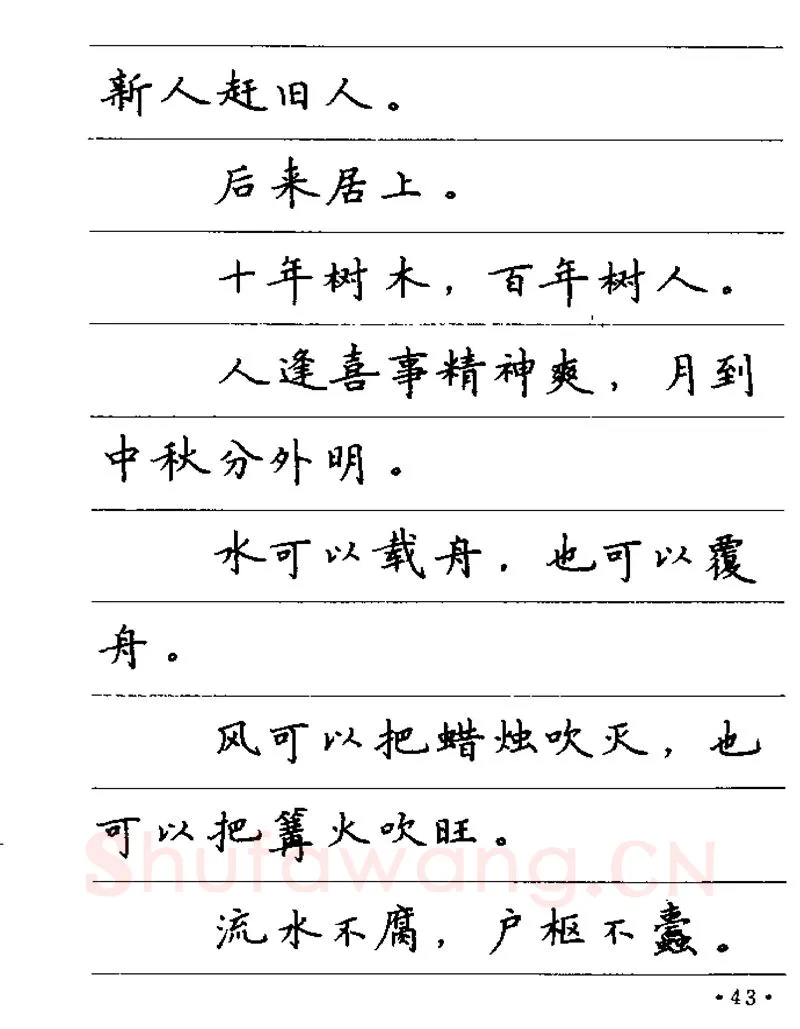 新人赶旧人。
后来居上。
十年树木，百年树人。
人逢喜事精神爽，月到
中秋分外明。
水可以载舟，也可以覆
舟。
风可以把蜡烛吹灭，也
可以把篝火吹旺。
Shufawang.CN
流水不腐，户枢不蠹。
·43·